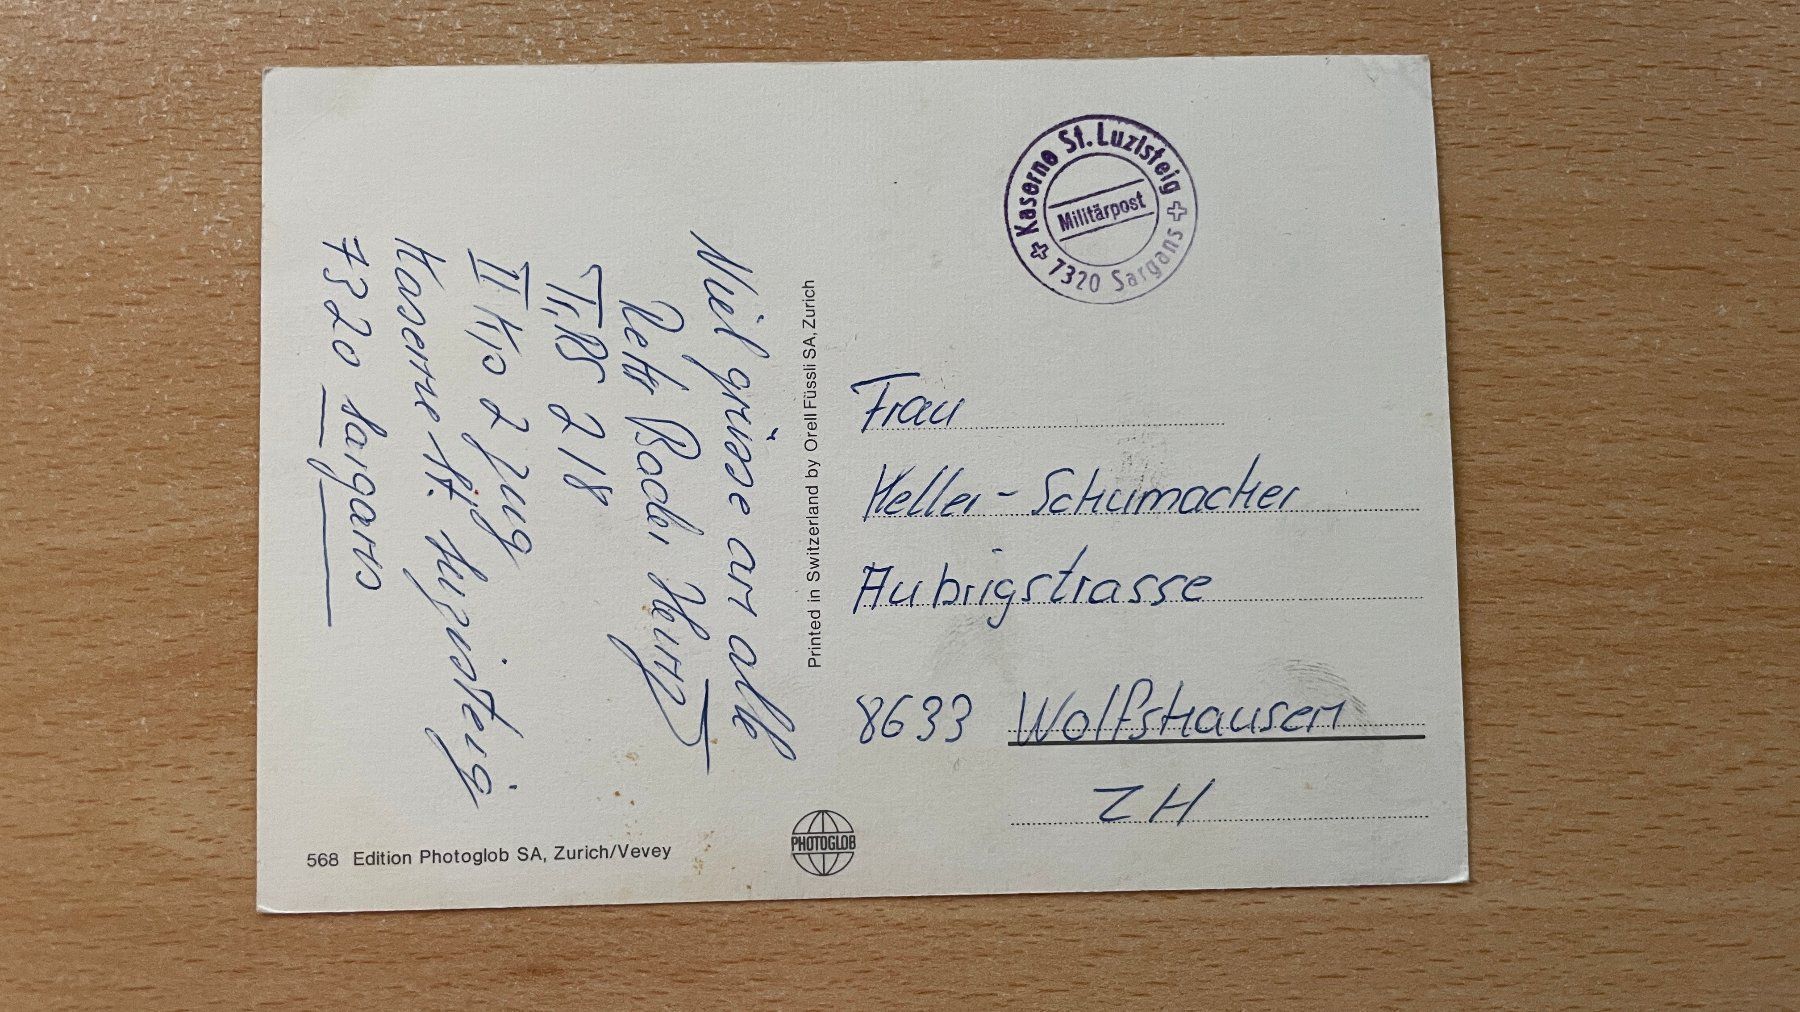 Viel grüsse an alle
Rekr Bader Heinz
Ti, RS 218
II Kp 2 Zug
Kaserne St. Luzisteig
7320 Sargans
568 Edition Photoglob SA, Zurich/Vevey
Printed in Switzerland by Orell Füssli SA, Zurich
PHOTOGLOB
Kaserne St. Luzisteig
Militärpost
7320 Sargans
Frau
Keller-Schumacher
Aubrigstrasse
8633 Wolfshausen
ZH